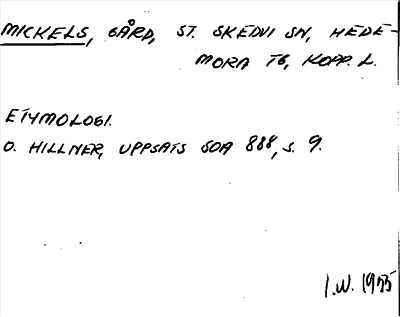 MICKELS, GÅRD, ST. SKEDVI SN, HEDE-
MORA TG, KOPP. L.
ETYMOLOGI.
O. HILLNER, UPPSATS SOA 888, S. 9.
I.W. 1955